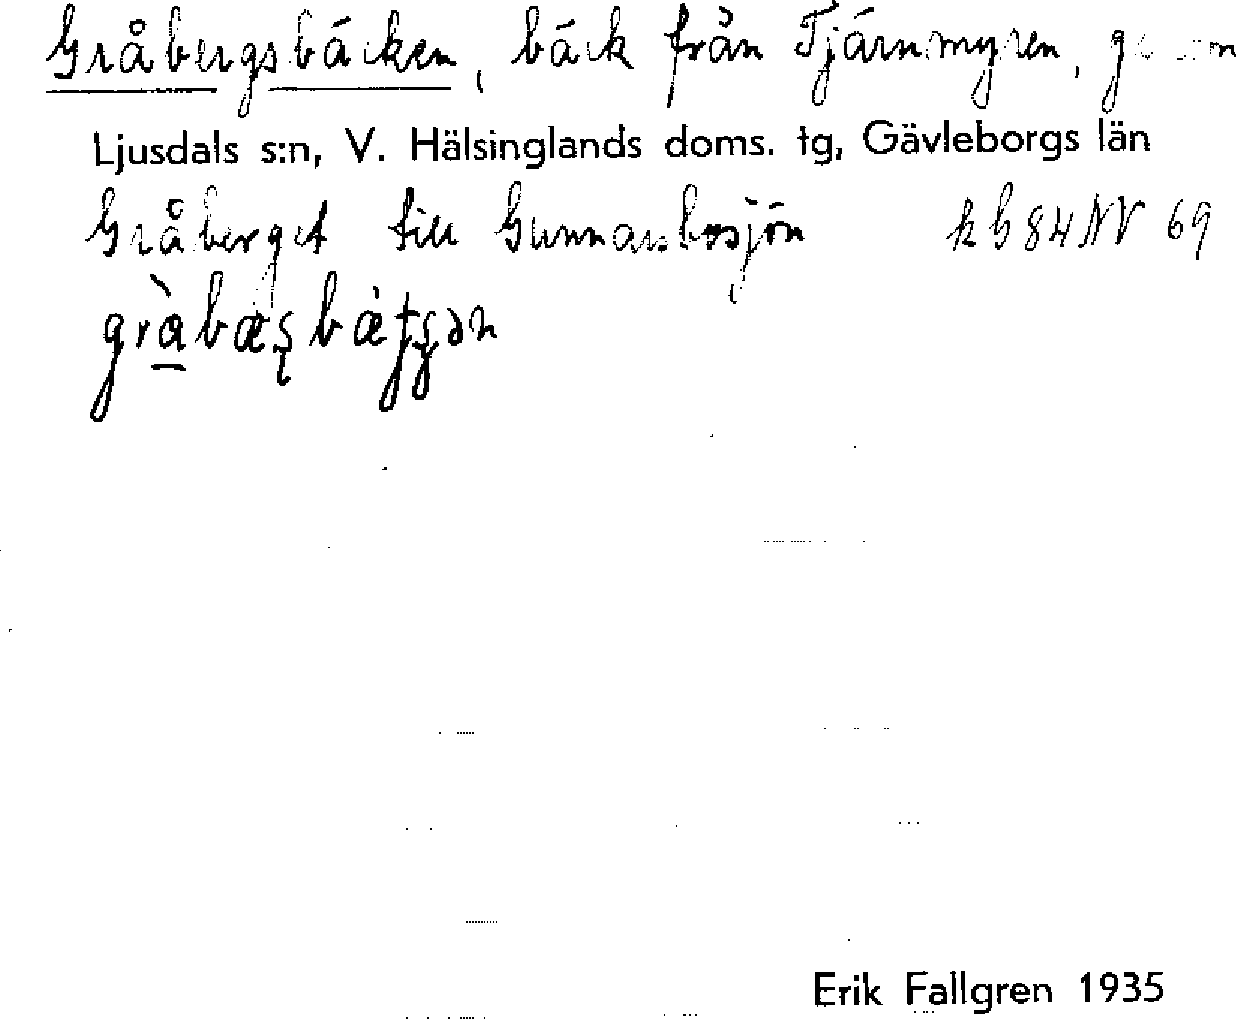 Gråbergsbäcken, bäck från Tjärnmyren, genom
Ljusdals s:n, V. Hälsinglands doms. tg, Gävleborgs län
Gråberget till Gunnarsbosjön kb 84 NV 69
Erik Fallgren 1935